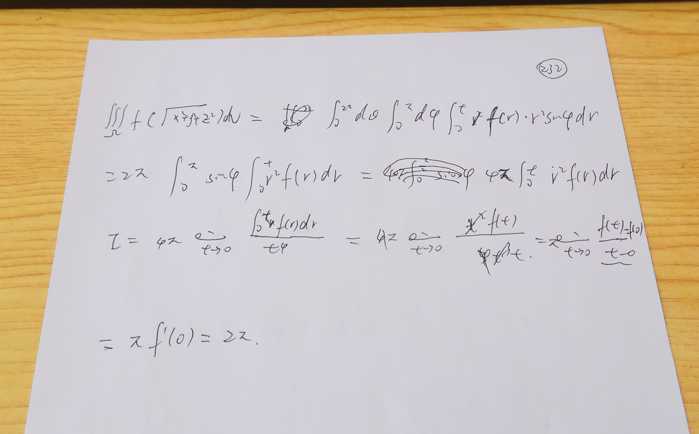 232
∭_Ω f(√(x²+y²+z²))dv = ∫₀^{2π} dθ ∫₀^π dφ ∫₀^t f(r)·r²sinφdr
=2π ∫₀^π sinφ ∫₀^t r²f(r)dr = 4π ∫₀^t r²f(r)dr
I = 4π lim_{t→0} ∫₀^t f(r)dr / t⁴ = 4π lim_{t→0} f(t) / t = π lim_{t→0} (f(t)-f(0)) / (t-0)
= π f'(0) = 2π.